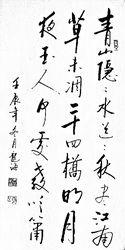 青山隐々水迢々秋尽江南
草未凋二十四橋明月
夜玉人何處教吹簫
壬辰年冬月